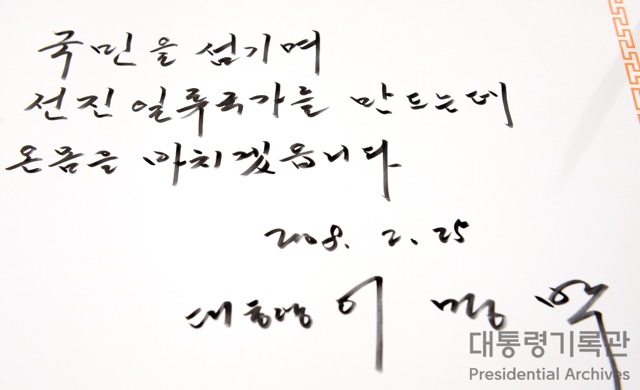 국민을 섬기며
선진일류국가를 만드는데
온몸을 바치겠읍니다
2008. 2. 25
대통령 이 명 박
대통령기록관
Presidential Archives